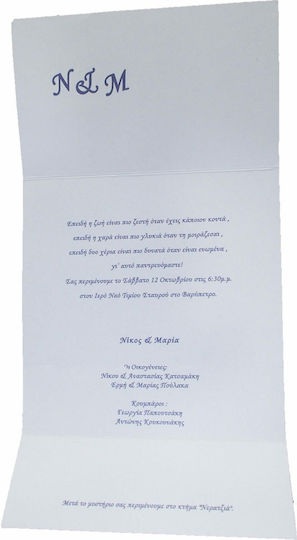 N & M
Επειδή η ζωή είναι πιο ζεστή όταν έχεις κάποιον κοντά ,
επειδή η χαρά είναι πιο γλυκιά όταν τη μοιράζεσαι ,
επειδή δυο χέρια είναι πιο δυνατά όταν είναι ενωμένα ,
γι' αυτό παντρευόμαστε!
Σας περιμένουμε το Σάββατο 12 Οκτωβρίου στις 6:30μ.μ.
στον Ιερό Ναό Τιμίου Σταυρού στο Βαρύπετρο.
Νίκος & Μαρία
Οι Οικογένειες:
Νίκου & Αναστασίας Κατσαμάκη
Ερμή & Μαρίας Πούλακα
Κουμπάροι :
Γεωργία Παπουτσάκη
Αντώνης Κουκουνάκης
Μετά το μυστήριο σας περιμένουμε στο κτήμα "Νερατζιά".